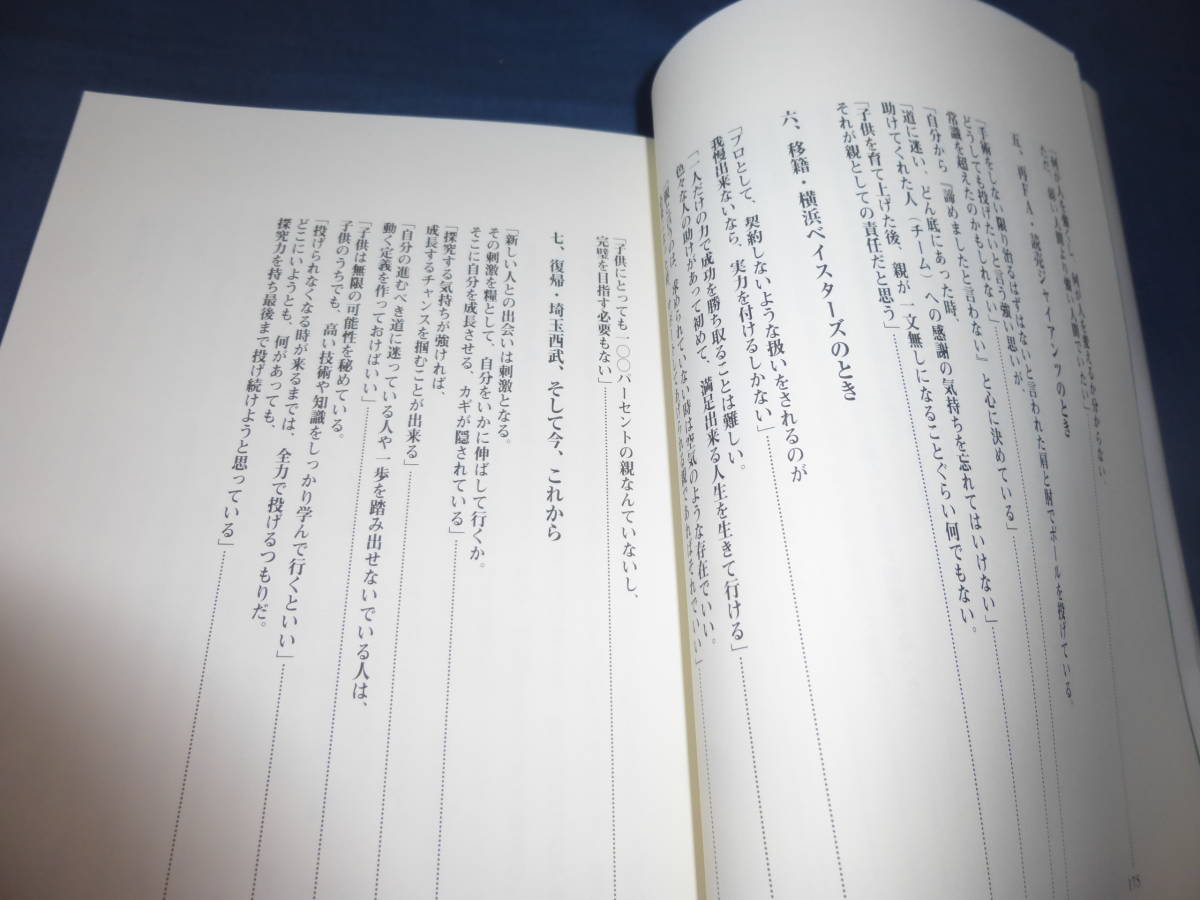 五、再FA・読売ジャイアンツのとき
「手術をしない限り治るはずはないと言われた肩と肘でボールを投げている。
どうしても投げたいと言う強い思いが、
常識を超えたのかもしれない」
「自分から『諦めましたと言わない』と心に決めている」
「道に迷い、どん底にあった時、
助けてくれた人（チーム）への感謝の気持ちを忘れてはいけない」
「子供を育て上げた後、親が一文無しになることぐらい何でもない。
それが親としての責任だと思う」
六、移籍・横浜ベイスターズのとき
「プロとして、契約しないような扱いをされるのが
我慢出来ないなら、実力を付けるしかない」
「一人だけの力で成功を勝ち取ることは難しい。
色々な人の助けがあって初めて、満足出来る人生を生きて行ける」
求められていない時は空気のような存在でいい。
175
「子供にとっても一〇〇パーセントの親なんていないし、
完璧を目指す必要もない」
七、復帰・埼玉西武、そして今、これから
「新しい人との出会いは刺激となる。
その刺激を糧として、自分をいかに伸ばして行くか。
そこに自分を成長させる、カギが隠されている」
「探究する気持ちが強ければ、
成長するチャンスを掴むことが出来る」
「自分の進むべき道に迷っている人や一歩を踏み出せないでいる人は、
動く定義を作っておけばいい」
「子供は無限の可能性を秘めている。
子供のうちでも、高い技術や知識をしっかり学んで行くといい」
「投げられなくなる時が来るまでは、全力で投げるつもりだ。
どこにいようとも、何があっても、
探究力を持ち最後まで投げ続けようと思っている」